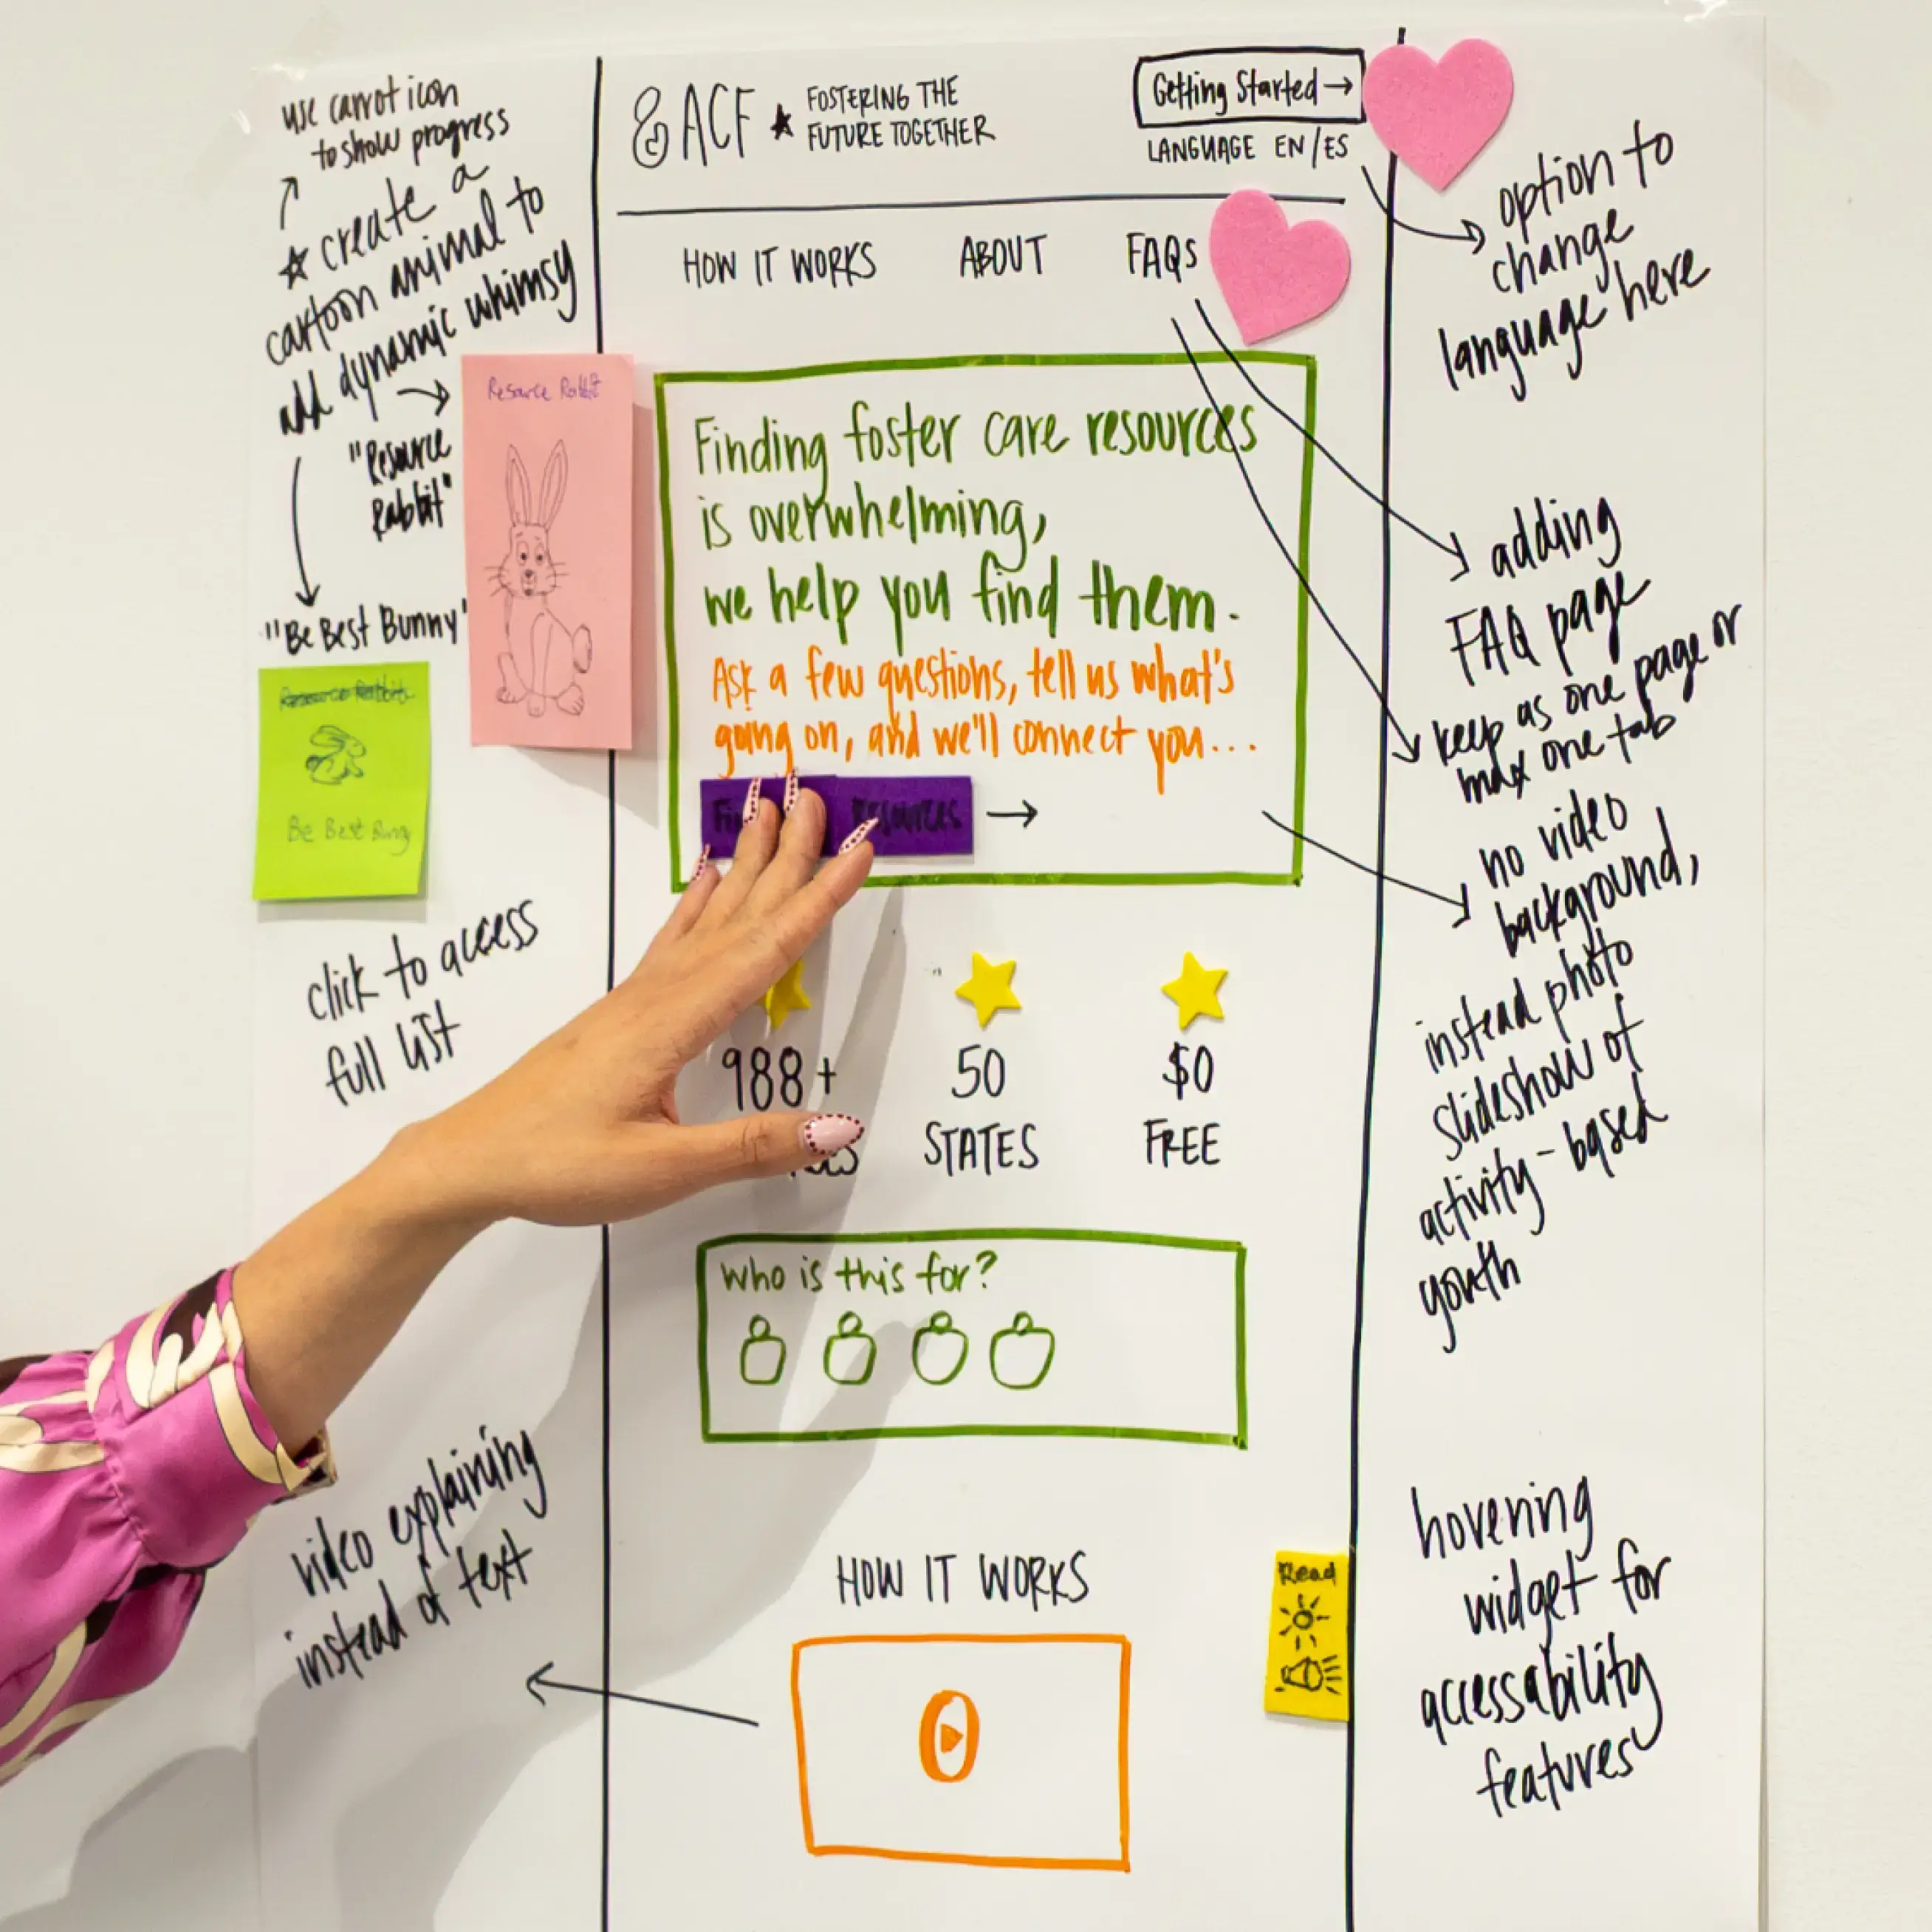 use carrot icon
to show progress
★ create a
cartoon animal to
add dynamic whimsy
"Resource
Rabbit"
"Be Best Bunny"
Resource Rabbit
Resource Rabbit
Be Best Bunny
click to access
full list
video explaining
instead of text
& ACF ★ FOSTERING THE
FUTURE TOGETHER
Getting Started →
LANGUAGE EN/ES
HOW IT WORKS ABOUT FAQs
Finding foster care resources
is overwhelming,
we help you find them.
Ask a few questions, tell us what's
going on, and we'll connect you...
Resources →
988+
50
STATES
$0
FREE
Who is this for?
HOW IT WORKS
Read
option to
change
language here
adding
FAQ page
keep as one page or
max one tab
no video
background,
instead photo
slideshow of
activity-based
youth
hovering
widget for
accessability
features